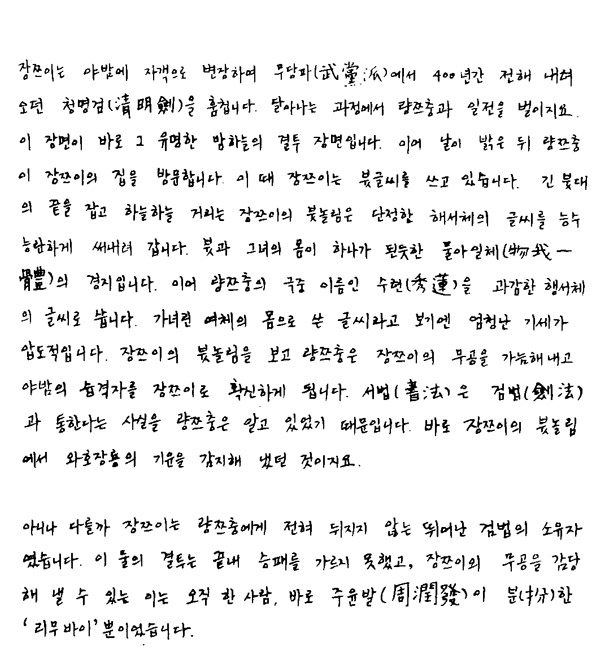 장쯔이는 야밤에 자객으로 변장하여 무당파(武黨派)에서 400년간 전해 내려
오던 청명검(淸明劍)을 훔칩니다. 달아나는 과정에서 량쯔충과 일전을 벌이지요.
이 장면이 바로 그 유명한 밤하늘의 결투 장면입니다. 이어 날이 밝은 뒤 량쯔충
이 장쯔이의 집을 방문합니다. 이 때 장쯔이는 붓글씨를 쓰고 있습니다. 긴 붓대
의 끝을 잡고 하늘하늘 거리는 장쯔이의 붓놀림은 단정한 해서체의 글씨를 능수
능란하게 써내려 갑니다. 붓과 그녀의 몸이 하나가 된듯한 물아일체(物我一
體)의 경지입니다. 이어 량쯔충의 극중 이름인 수련(秀蓮)을 과감한 행서체
의 글씨로 씁니다. 가녀린 여체의 몸으로 쓴 글씨라고 보기엔 엄청난 기세가
압도적입니다. 장쯔이의 붓놀림을 보고 량쯔충은 장쯔이의 무공을 가늠해내고
야밤의 습격자를 장쯔이로 확신하게 됩니다. 서법(書法)은 검법(劍法)
과 통한다는 사실을 량쯔충은 알고 있었기 때문입니다. 바로 장쯔이의 붓놀림
에서 와호장룡의 기운을 감지해 냈던 것이지요.
아니나 다를까 장쯔이는 량쯔충에게 전혀 뒤지지 않는 뛰어난 검법의 소유자
였습니다. 이 둘의 결투는 끝내 승패를 가르지 못했고, 장쯔이의 무공을 감당
해 낼 수 있는 이는 오직 한 사람, 바로 주윤발(周潤發)이 분(扮)한
'리무바이' 뿐이었습니다.